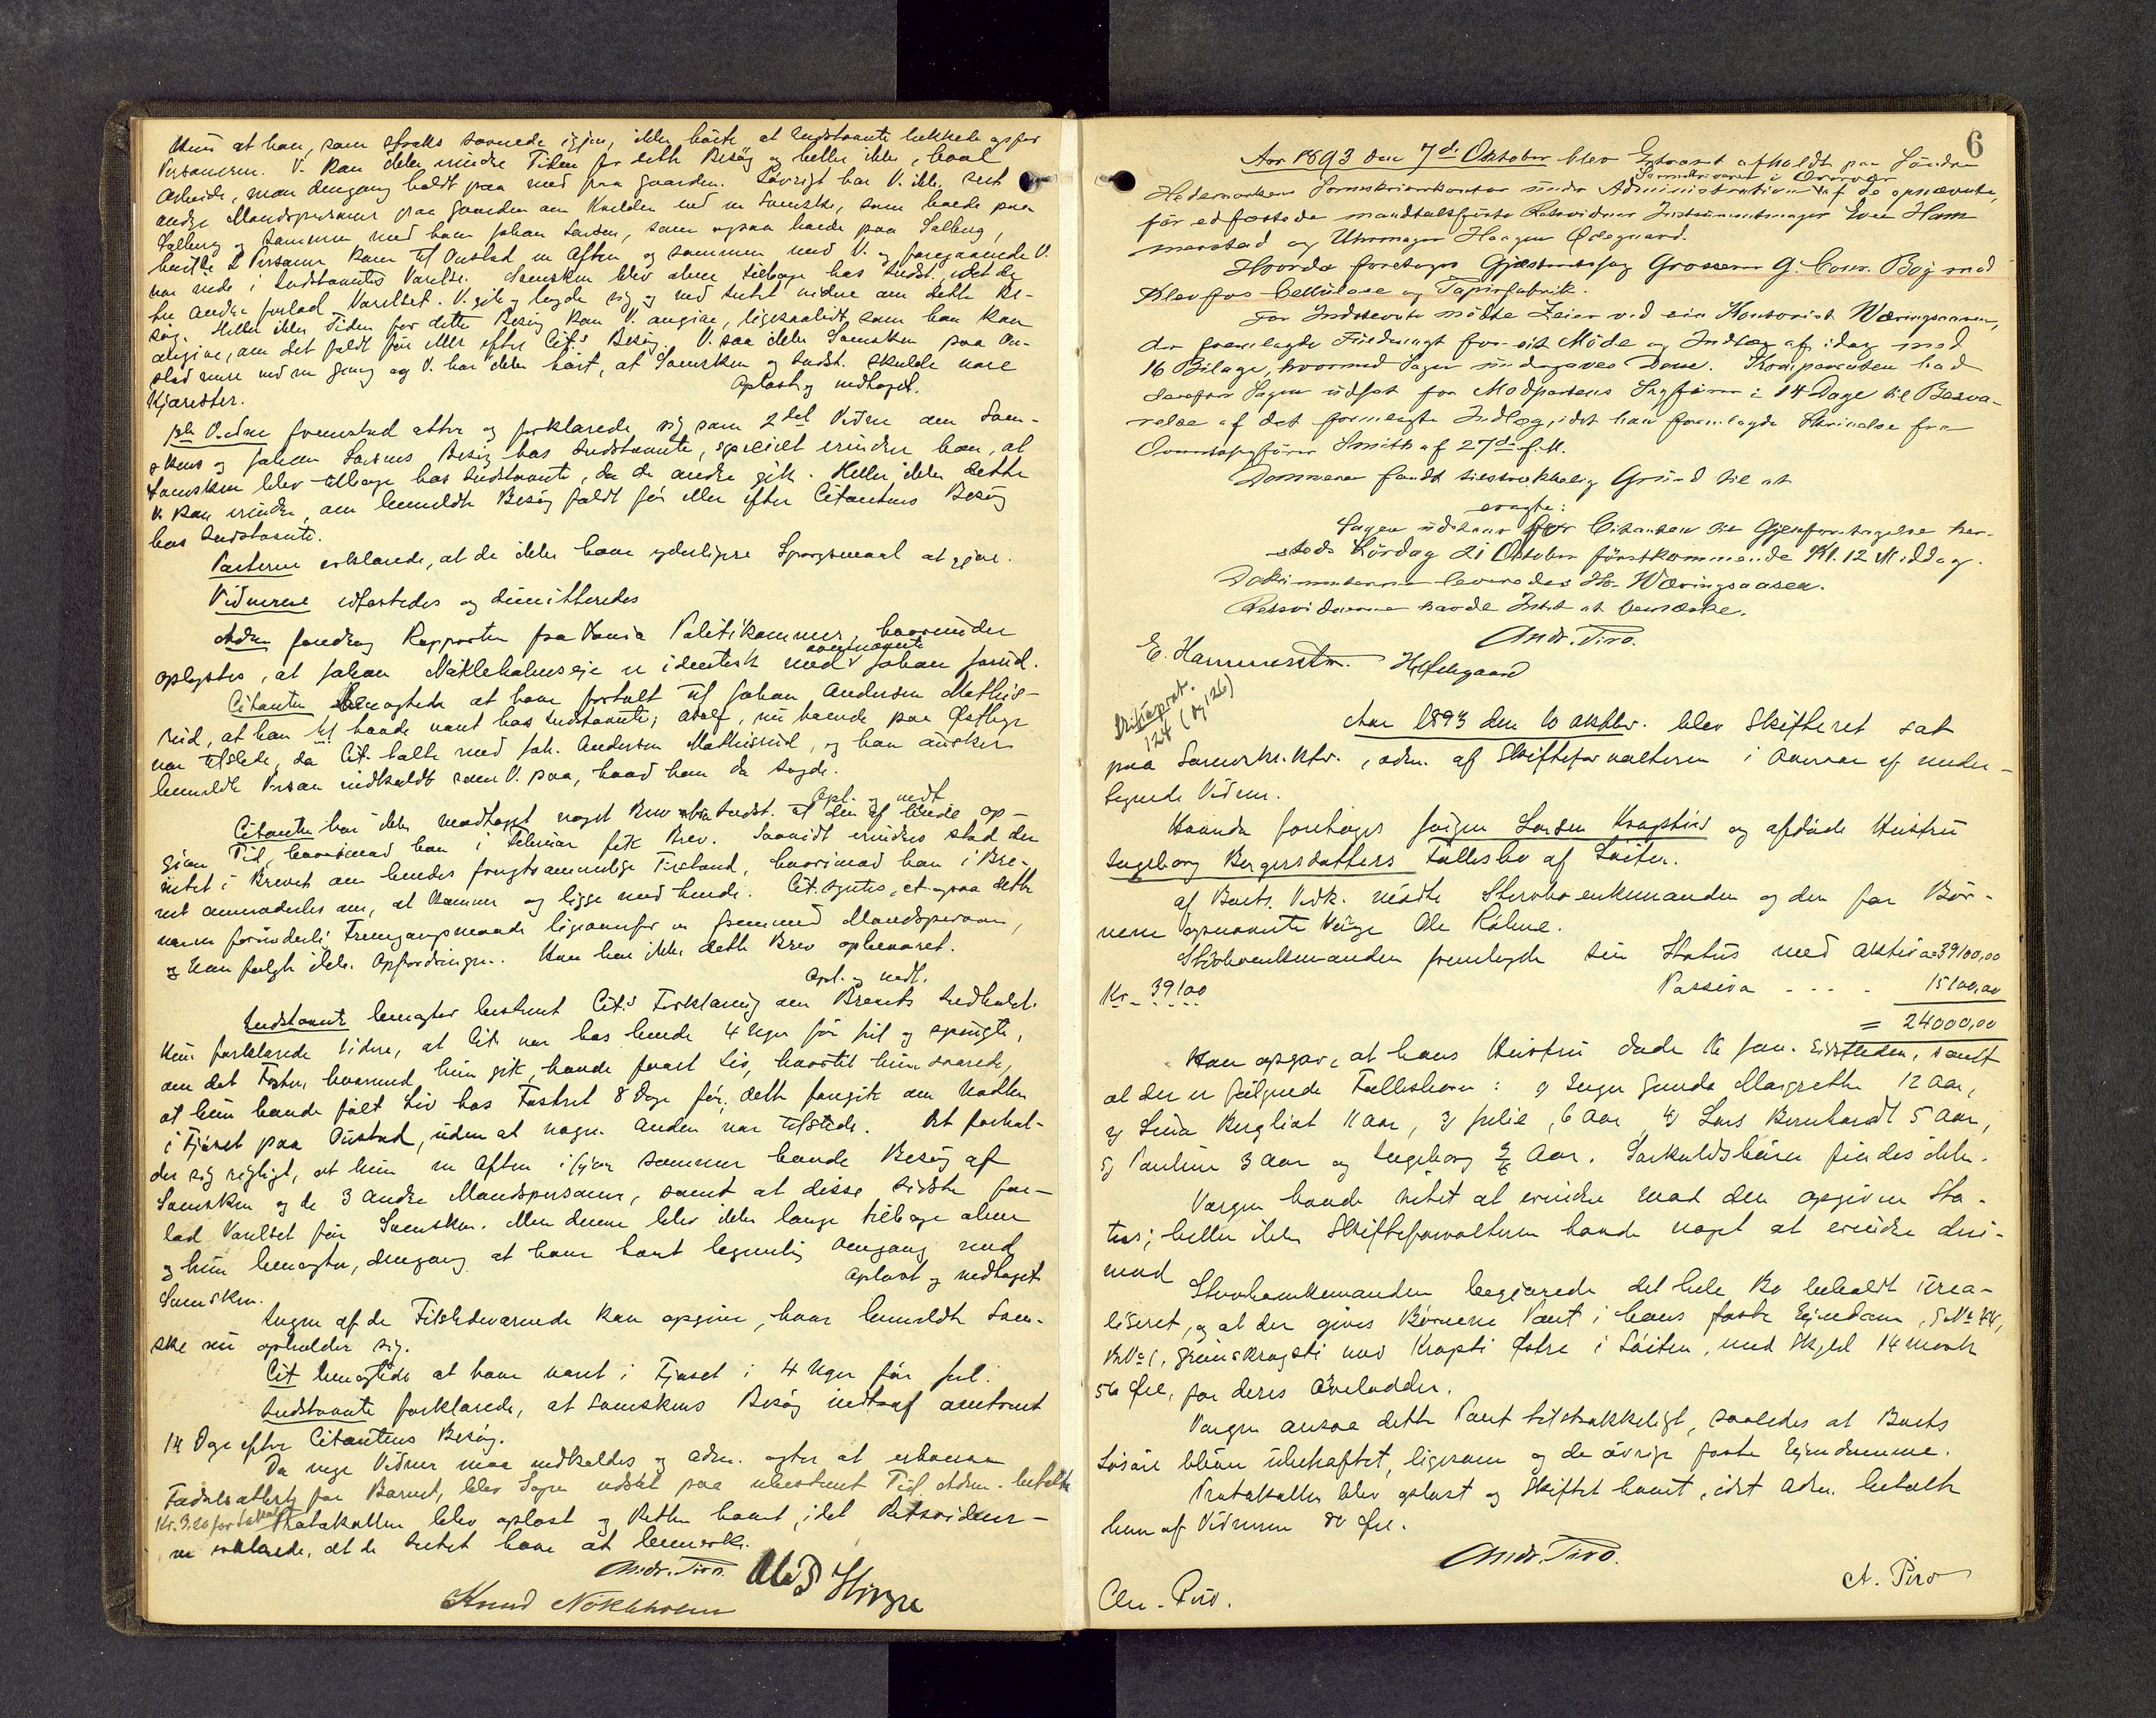 Hun at han, som straks sovnede igjen, ikke hørte at Indstevnte lukkede op for
Personerne. V. kan ikke erindre Tiden for dette Besøg og heller ikke, hvad
Arbeide, man dengang holdt paa med paa Gaarden. Iøvrigt har V. ikke seet
andre Mandspersoner paa Gaarden om Kvelden end en Svenske, som havde paa
Salberg og sammen med ham Johan Larsen, som ogsaa havde paa Salberg,
hvilke 2 Personer kom til Onstad en Aften og sammen med V. og foregaaende V.
var inde i Indstevntes Værelse. Svensken blev alene tilbage hos Indst., idet de
tre andre forlod Værelset. V. gik og lagde sig og ved Intet videre om dette Be-
søg. Heller ikke Tiden for dette Besøg kan V. angive, ligesaalidt som han kan
angive, om det faldt før eller efter Cit.s Besøg. V. saa ikke Svensken paa On-
stad mere end en gang og V. har ikke hørt, at Svensken og Indst. skulde være
Kjærester.
Oplæst og vedtaget.
1ste Vidne fremstod atter og forklarede sig som 2det Vidne om Sven-
skens og Johan Larsens Besøg hos Indstevnte, specielt erindrer han, at
Svensken blev tilbage hos Indstevnte, da de andre gik. Heller ikke dette
V. kan erindre, om bemeldte Besøg faldt før eller efter Citantens Besøg
hos Indstevnte.
Parterne erklærede, at de ikke have yderligere Spørgsmaal at gjøre.
Vidnerne edfæstedes og dimitteredes
Adm. foredrog Rapporten fra Vania Politikammer, hvorunder
oplystes, at Johan Nækleholmseie er identisk med ovennævnte Johan Jarud.
Citanten benægtede at have fortalt til Johan Andersen Mathis-
rud, at han havde været hos Indstevnte; Adolf, nu havende paa Østbye
var tilstede, da Cit. talte med Joh. Andersen Mathisrud, og han ønsker
bemeldte Person indkaldt som V. paa, hvad han da sagde.
Opl. og vedt.
Citanten har ikke modtaget noget Brev fra Indst. til den af hende op-
givne Tid, hvorimod han i Februar fik Brev. Saavidt erindres stod der
intet i Brevet om hendes frugtsommelige Tilstand, hvorimod han i Bre-
vet anmodedes om, at komme og ligge med hende. Cit. syntes, at ogsaa dette
var en forunderlig Fremgangsmaade ligeoverfor en fremmed Mandsperson,
og han fulgte ikke Opfordringen. Han har ikke dette Brev opbevaret.
Opl. og vedt.
Indstevnte benægter bestemt Cit.s Forklaring om Brevets Indhold.
Hun forklarede videre, at Cit. var hos hende 4 Uger før Jul og spurgte,
om det Foster, hvormed hun gik, havde faaet Liv, hvortil hun svarede,
at hun havde følt Liv hos Fostret 8 Dage før; dette foregik om Natten
i Fjøset paa Onstad, uden at nogen Anden var tilstede. Det forhol-
der sig rigtigt, at hun en Aften ifjor Sommer havde Besøg af
Svensken og de 3 andre Mandspersoner, samt at disse sidste for-
lod Værelset før Svensken. Men denne blev ikke længe tilbage alene
og hun benægter, dengang at have havt legemlig Omgang med
Svensken.
Oplæst og vedtaget
Ingen af de Tilstedeværende kan opgive, hvor bemeldte Sven-
ske nu opholder sig.
Cit benægtede at have været i Fjøset i 4 Uger før Jul.
Indstevnte forklarede, at Svenskens Besøg indtraf omtrent
14 Dage efter Citantens Besøg.
Da nye Vidner maa indkaldes og adm. agter at erhverve
Fødselsattest for Barnet, blev Sagen udsat paa ubestemt Tid. Adm. betalte
Kr. 3.20 for Lokalet Protokollen blev oplæst og Retten hævet, idet Retsvidner-
ne erklærede, at de Intet have at bemerke.
Andr. Tiro.
Knud Nökleholm
6
Aar 1893 den 7de Oktober blev Extraret afholdt paa Søndre
Hedemarkens Sorenskriverkontor under Administration af Sorenskriveren i Overvær af de opnævnte,
før edfæstede mandtalsførte Retsvidner Instrumentmager Even Ham
merstad og Uhrmager Haagen Ødegaard.
Hvorda foretoges Gjæsteretssag Grosserer G. Conr. Bøg mod
Klevfos Cellulose og Papirfabrik.
For Indstevnte mødte Zeier ved sin Kontorist Wæringsaasen,
der fremlagde Fuldmagt for sit Møde og Indlæg af idag med
16 Bilage, hvormed Sagen undergaves Dom. Komparenten bad
derefter Sagen udsat for Modpartens Sagfører i 14 Dage til Besva-
relse af det fremlagte Indlæg, idet han fremlagde Skrivelse fra
Overretssagfører Smith af 27de f.M.
Dommeren fandt tilstrækkelig Grund til at
eragte:
Sagen udstaar for Citanten til Gjenforetagelse her-
steds Lørdag 21 Oktober førstkommende Kl. 12 Middag.
Dokumenterne leveredes Hr. Wæringsaasen.
Retsvidnerne havde Intet at bemærke.
Andr. Tiro.
E. Hammerstad. H Ødegaard
Skifteprot.
124 (og 126)
Aar 1893 den 10 Oktbr. blev Skifteret sat
paa Sorenskr.ktr., adm. af Skifteforvalteren i Overvær af under-
tegnede Vidner.
Hvorda foretoges Jørgen Larsen Kragstis og afdøde Hustru
Ingeborg Bergersdatters Fællesbo af Løiten.
Af Boets Vedk. mødte Stervboenkemanden og den for Bør-
nene opnævnte Værge Ole Kølme.
Stervboenkemanden fremlagde sin Status med Aktiva 39100,00
Kr. 39100
Passiva - - - - 15100,00
= 24000,00
Han opgav, at hans Hustru døde 16 Jan. sidstleden, samt
at der er følgende Fællesbørn: 1) Inger Gunda Margrethe 12 Aar,
2) Lina Bergliot 11 Aar, 3) Julie, 6 Aar 4) Lars Bernhardt 5 Aar,
5) Pauline 3 Aar og Ingeborg Aar. Særkuldsbørn findes ikke.
Værgen havde intet at erindre mod den opgivne Sta-
tus; heller ikke Skifteforvalteren havde noget at erindre deri-
mod
Stervboenkemanden begjærede det hele Bo beholdt urea-
liseret, og at der gives Børnene Pant i hans faste Eiendom, G.No 44,
B.No 1, Grønskragsti nov Kragsti Østre i Løiten, med Skyld 14 mark
56 Øre, for deres Arvelodder.
Værgen ansaa dette Pant tilstrækkeligt, saaledes at Boets
Løsøre bliver ubehæftet, ligesom og de øvrige faste Eiendomme.
Protokollen blev oplæst og Skiftet hævet, idet Adm. betalte
hver af Vidnerne 80 Øre.
Andr. Tiro.
A. Piro
Chr. Piro.